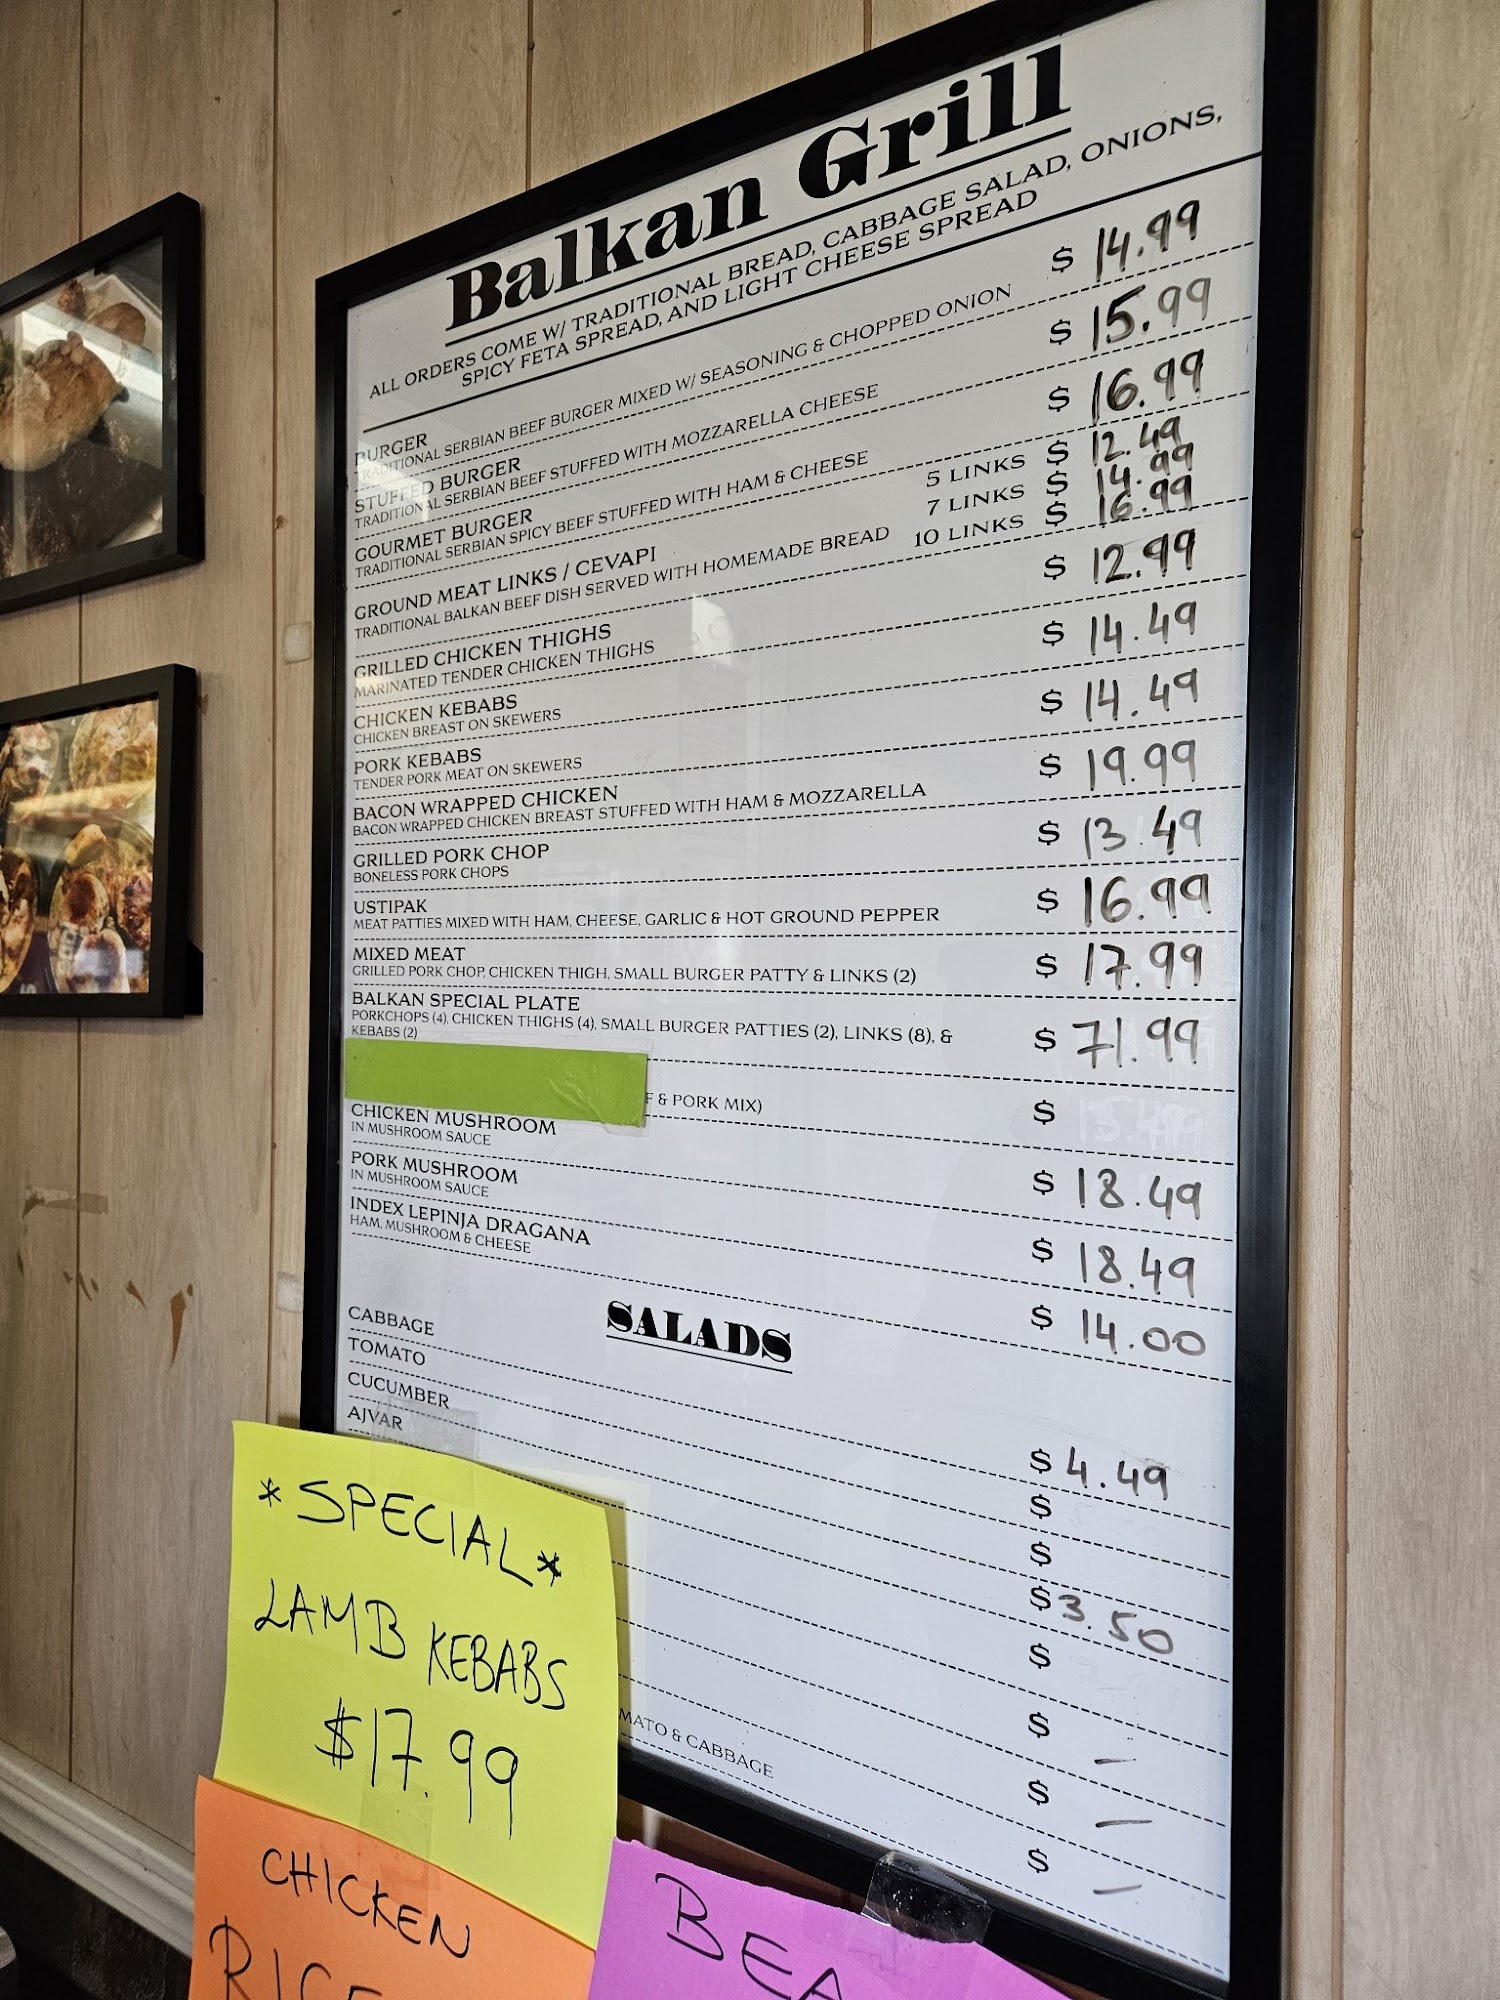 Balkan Grill
ALL ORDERS COME W/ TRADITIONAL BREAD, CABBAGE SALAD, ONIONS,
SPICY FETA SPREAD, AND LIGHT CHEESE SPREAD
BURGER $ 14.99
TRADITIONAL SERBIAN BEEF BURGER MIXED W/ SEASONING & CHOPPED ONION
STUFFED BURGER $ 15.99
TRADITIONAL SERBIAN BEEF STUFFED WITH MOZZARELLA CHEESE
GOURMET BURGER $ 16.99
TRADITIONAL SERBIAN SPICY BEEF STUFFED WITH HAM & CHEESE
5 LINKS $ 12.49
GROUND MEAT LINKS / CEVAPI 7 LINKS $ 14.99
TRADITIONAL BALKAN BEEF DISH SERVED WITH HOMEMADE BREAD 10 LINKS $ 16.99
GRILLED CHICKEN THIGHS $ 12.99
MARINATED TENDER CHICKEN THIGHS
CHICKEN KEBABS $ 14.49
CHICKEN BREAST ON SKEWERS
PORK KEBABS $ 14.49
TENDER PORK MEAT ON SKEWERS
BACON WRAPPED CHICKEN $ 19.99
BACON WRAPPED CHICKEN BREAST STUFFED WITH HAM & MOZZARELLA
GRILLED PORK CHOP $ 13.49
BONELESS PORK CHOPS
USTIPAK $ 16.99
MEAT PATTIES MIXED WITH HAM, CHEESE, GARLIC & HOT GROUND PEPPER
MIXED MEAT $ 17.99
GRILLED PORK CHOP, CHICKEN THIGH, SMALL BURGER PATTY & LINKS (2)
BALKAN SPECIAL PLATE $ 71.99
PORKCHOPS (4), CHICKEN THIGHS (4), SMALL BURGER PATTIES (2), LINKS (8), &
KEBABS (2)
F & PORK MIX) $
CHICKEN MUSHROOM $ 18.49
IN MUSHROOM SAUCE
PORK MUSHROOM $ 18.49
IN MUSHROOM SAUCE
INDEX LEPINJA DRAGANA $ 14.00
HAM, MUSHROOM & CHEESE
SALADS
CABBAGE $ 4.49
TOMATO $
CUCUMBER $
AJVAR $ 3.50
$
$ –
$ –
MATO & CABBAGE $ –
*SPECIAL*
LAMB KEBABS
$17.99
CHICKEN
RICE
BEA